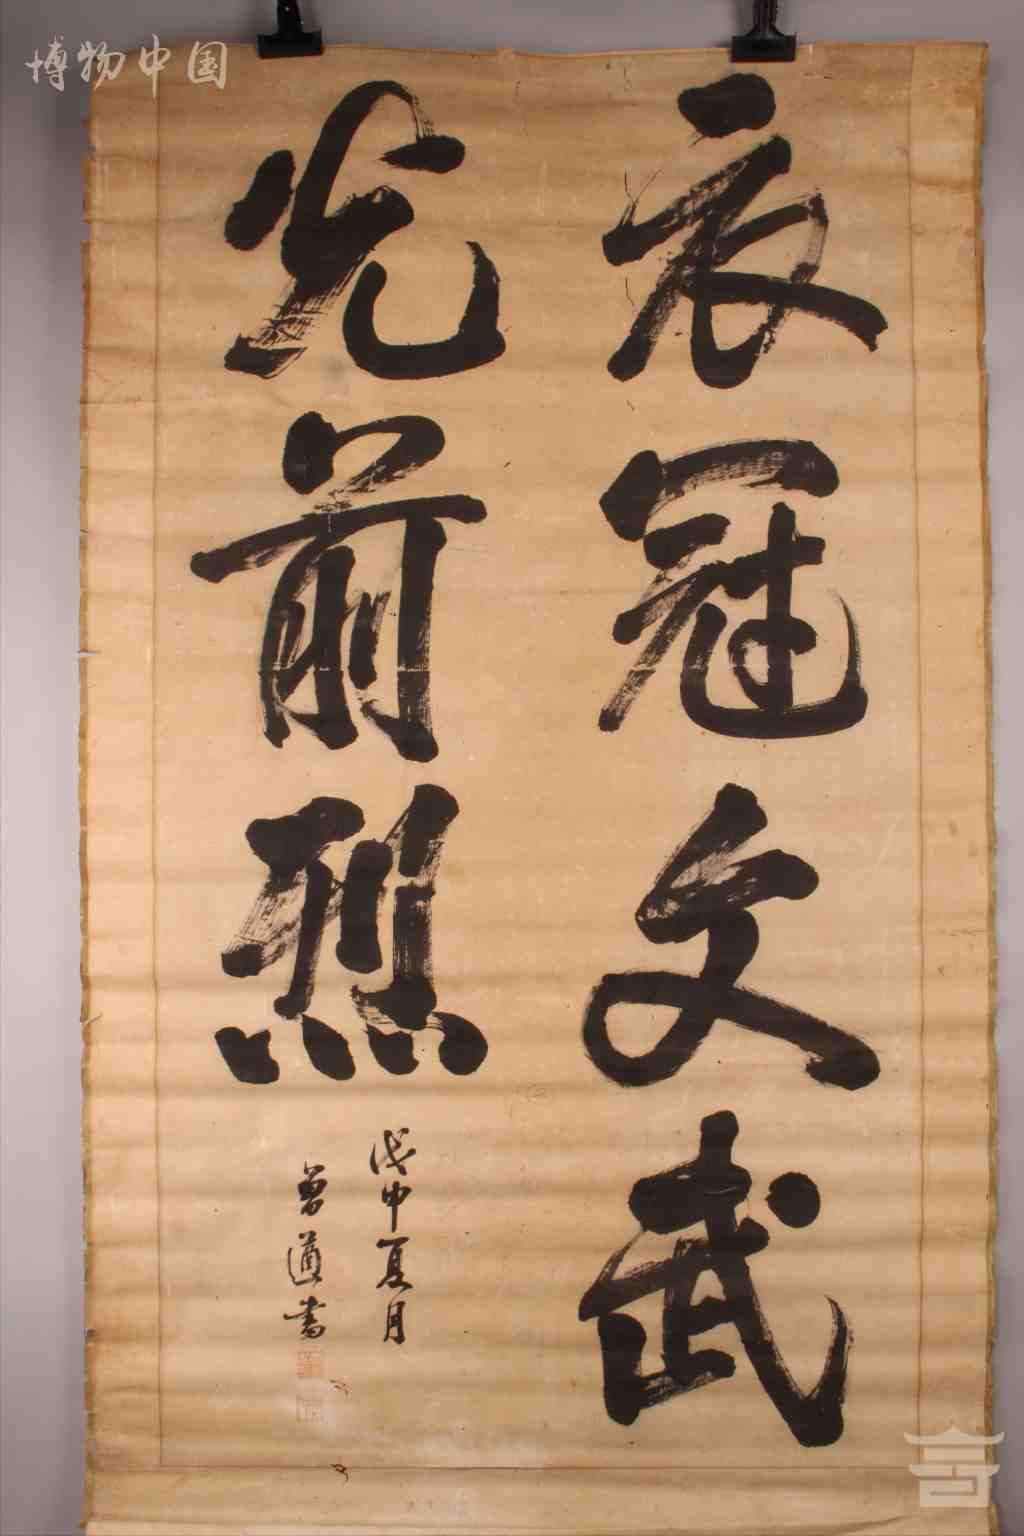 衣冠文武
光前烈
戊申夏月
曾遒書
博物中国